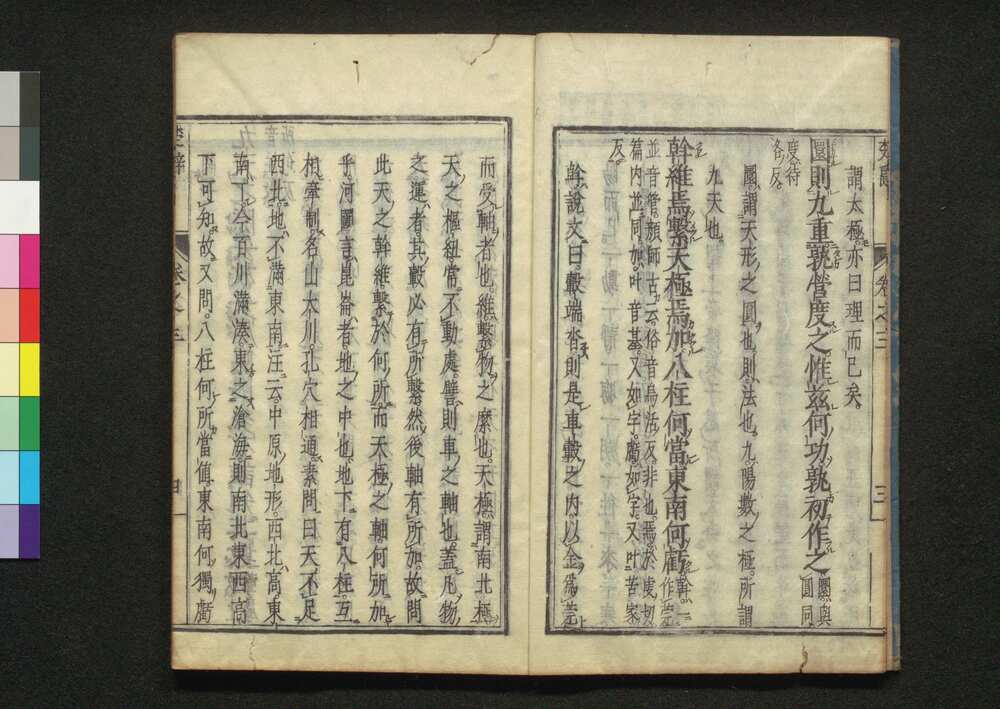 謂太極。亦曰理而已矣。
圜則九重孰營度之惟茲何功孰初作之圜與圓同
度待各反。
圜謂天形之圓也則法也。九陽數之極。所謂
九天也。
斡維焉繫天極焉加八柱何當東南何虧斡一作筦
並音管。顏師古云俗音烏活反非也焉於虔切
篇内並同。加叶音基。又如字。虧如字。又叶苦家
反。
斡説文曰。轂端沓。則是車轂之内以金爲
而受軸者也。維繫物之縻也。天極謂南北極
天之樞紐常不動處。譬則車之軸也。蓋凡物
之運者。其轂必有所繫然後軸有所加。故問
此天之斡維繫於何所。而天極之軸何所加
乎。河圖言。昆崙者。地之中也。地下有八柱。互
相牽制。名山大川。孔穴相通素問曰天不足
西北。地不滿東南注云。中原地形。西北高東
南下今百川滿湊東之滄海。則南北東西高
下可知。故又問。八柱何所當値。東南何獨虧
楚辭
卷之三
三
楚辭
卷之三
四